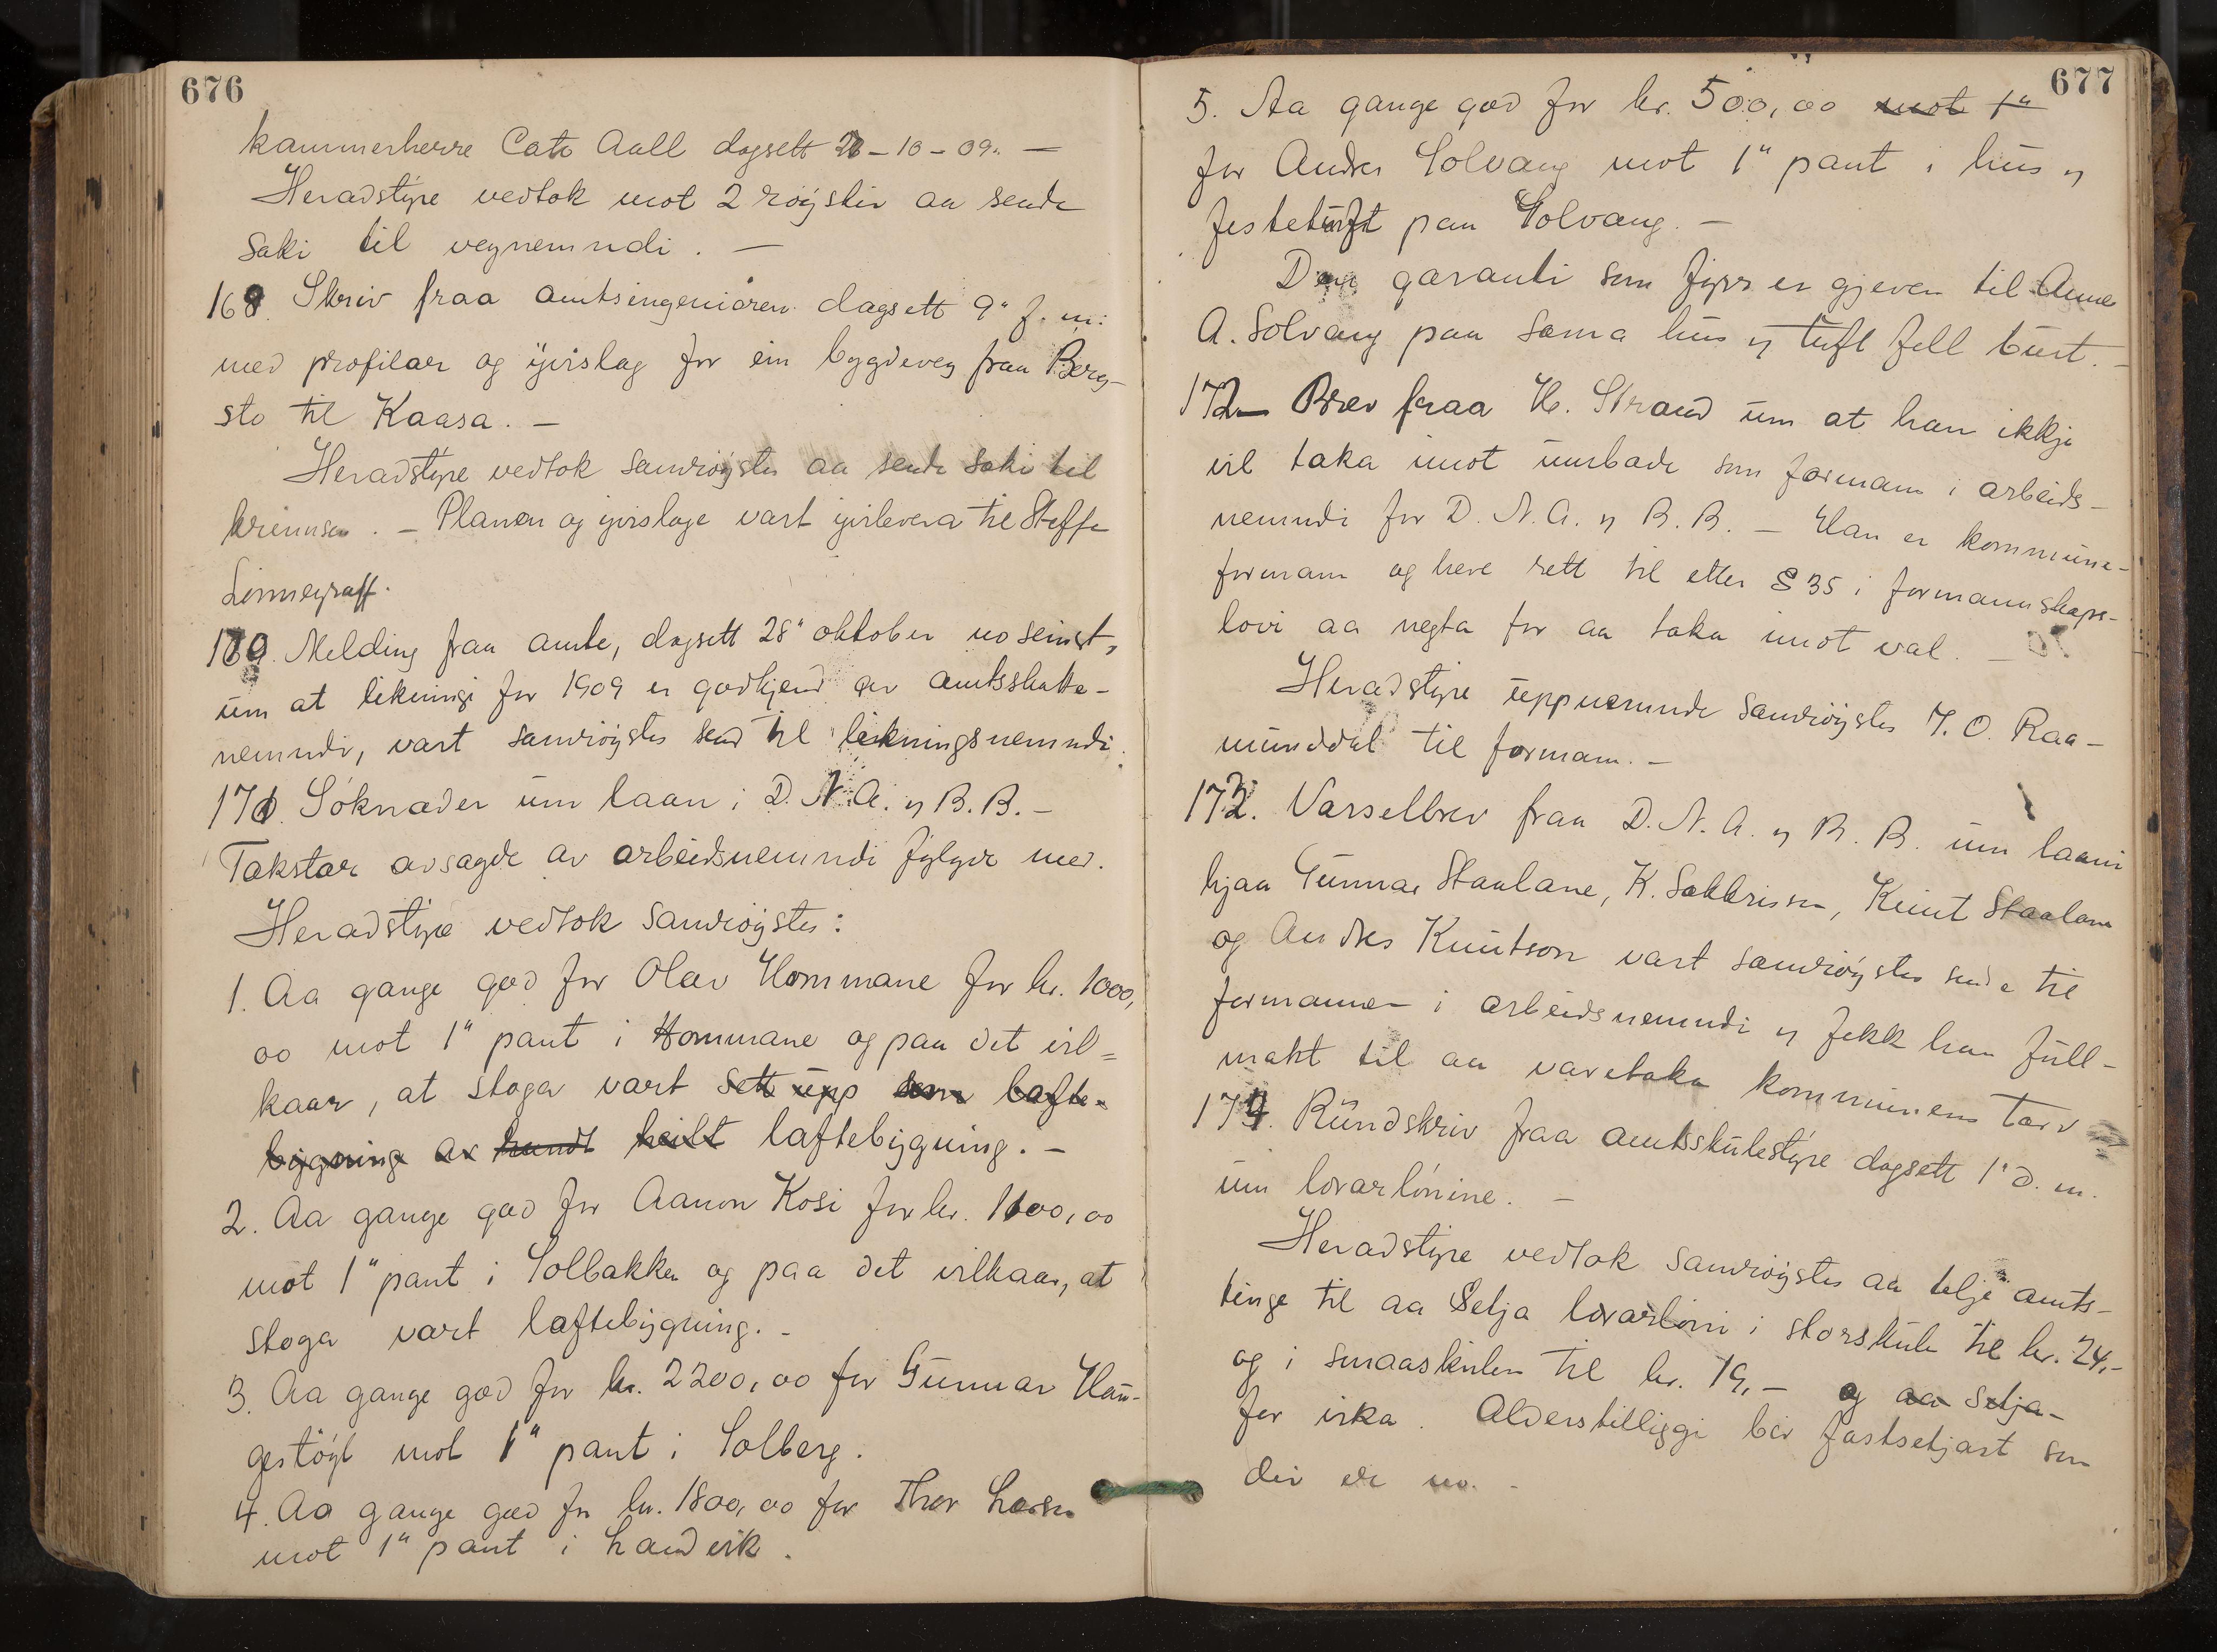 676
kammerherre Cato Aall dagsett 28-10-09. —
Heradstyre vedtok mot 2 röyster aa sende
saki til vegnemndi. —
168. Skriv fraa amtsingeniören dagsett 9" f. m.
med profilar og yvislag for ein bygdeveg fraa Berg-
sto til Kaasa. —
Heradstyre vedtok samröystes aa sende saki til
krinnsen. — Planen og yvislage vart yvilevera til Steffe
Linnegraff.
169. Melding fraa amte, dagsett 28" oktober no seinst,
um at likningi for 1909 er godkjend av amtsskatte-
nemndi, vart samröystes send til likningsnemndi.
170. Söknader um laan i D. N. A. og B. B. —
Takstar avsagde av arbeidsnemndi fylgde med.
Heradstyre vedtok samröystes:
1. Aa gange god for Olav Hommane for kr. 1000,
00 mot 1" pant i Hommane og paa det vil=
kaar, at stoga vart sett upp som lafte-
bygning av rundt heilt laftebygning. —
2. Aa gange god for Aanon Kosi for kr. 1100,00
mot 1" pant i Solbakken og paa det vilkaar, at
stoga vart laftebygning. —
3. Aa gange god for kr. 2200,00 for Gunnar Hau-
gestöyl mot 1" pant i Solberg.
4. Aa gange god for kr. 1800,00 for Thor Larsen
mot 1" pant i Landvik.
677
5. Aa gange god for kr. 500,00 mot 1"
for Andres Solvang mot 1" pant i hus og
festetuft paa Solvang. —
Den garanti som fyrr er gjeven til Anne
A. Solvang paa sama hus og tuft fell burt. —
172 — Brev fraa H. Strand um at han ikkje
vil taka imot umbode som formann i arbeids-
nemndi for D. N. A. og B. B. — Han er kommune-
formann og heve rett til etter § 35 i formannskaps-
lovi aa negta for aa taka imot val. —
Heradstyre uppnemnde samröystes T. O. Raa-
munddal til formann. —
173. Varselbrev fraa D. N. A. og B. B. um laani
hjaa Gunnar Staalane, K. Sakkrissen, Knut Staalane
og Andres Knutson vart samröystes sende til
formannen i arbeidsnemndi og fekk han full-
makt til aa varetaka kommunens tarv
174. Rundskriv fraa amtsskulestyre dagsett 1" d. m.
um lövarlönine. —
Heradstyre vedtok samröystes aa telje amts-
tinge til aa setja lövarlöni i storskule til kr. 24,-
og i smaaskulen til kr. 19,- og aa setja-
for vika. Alderstilliggi ber fastsetjast som
dei er no. -